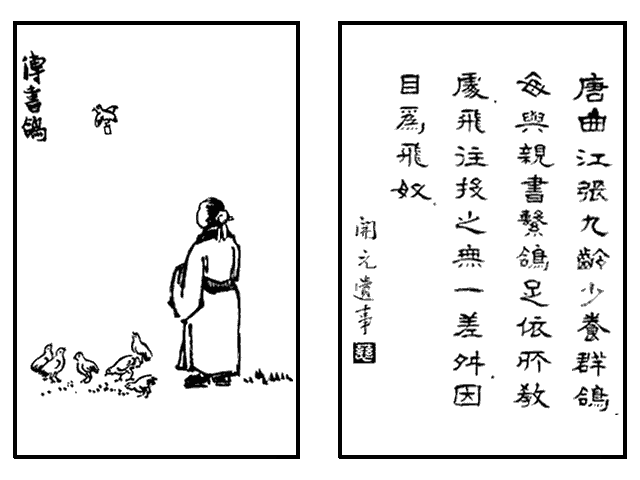 傳書鴿
唐曲江張九齡少養群鴿.
每與親書繫鴿足依所教
處.飛往投之無一差舛.因
目爲飛奴.
開元遺事